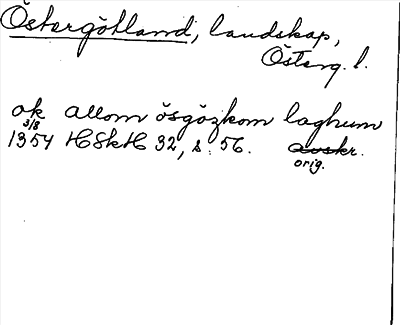 Östergötland, landskap,
Österg. l.
ok allom ösgözkom laghum
3/8
1354 HSkH 32, s. 56. avskr.
orig.